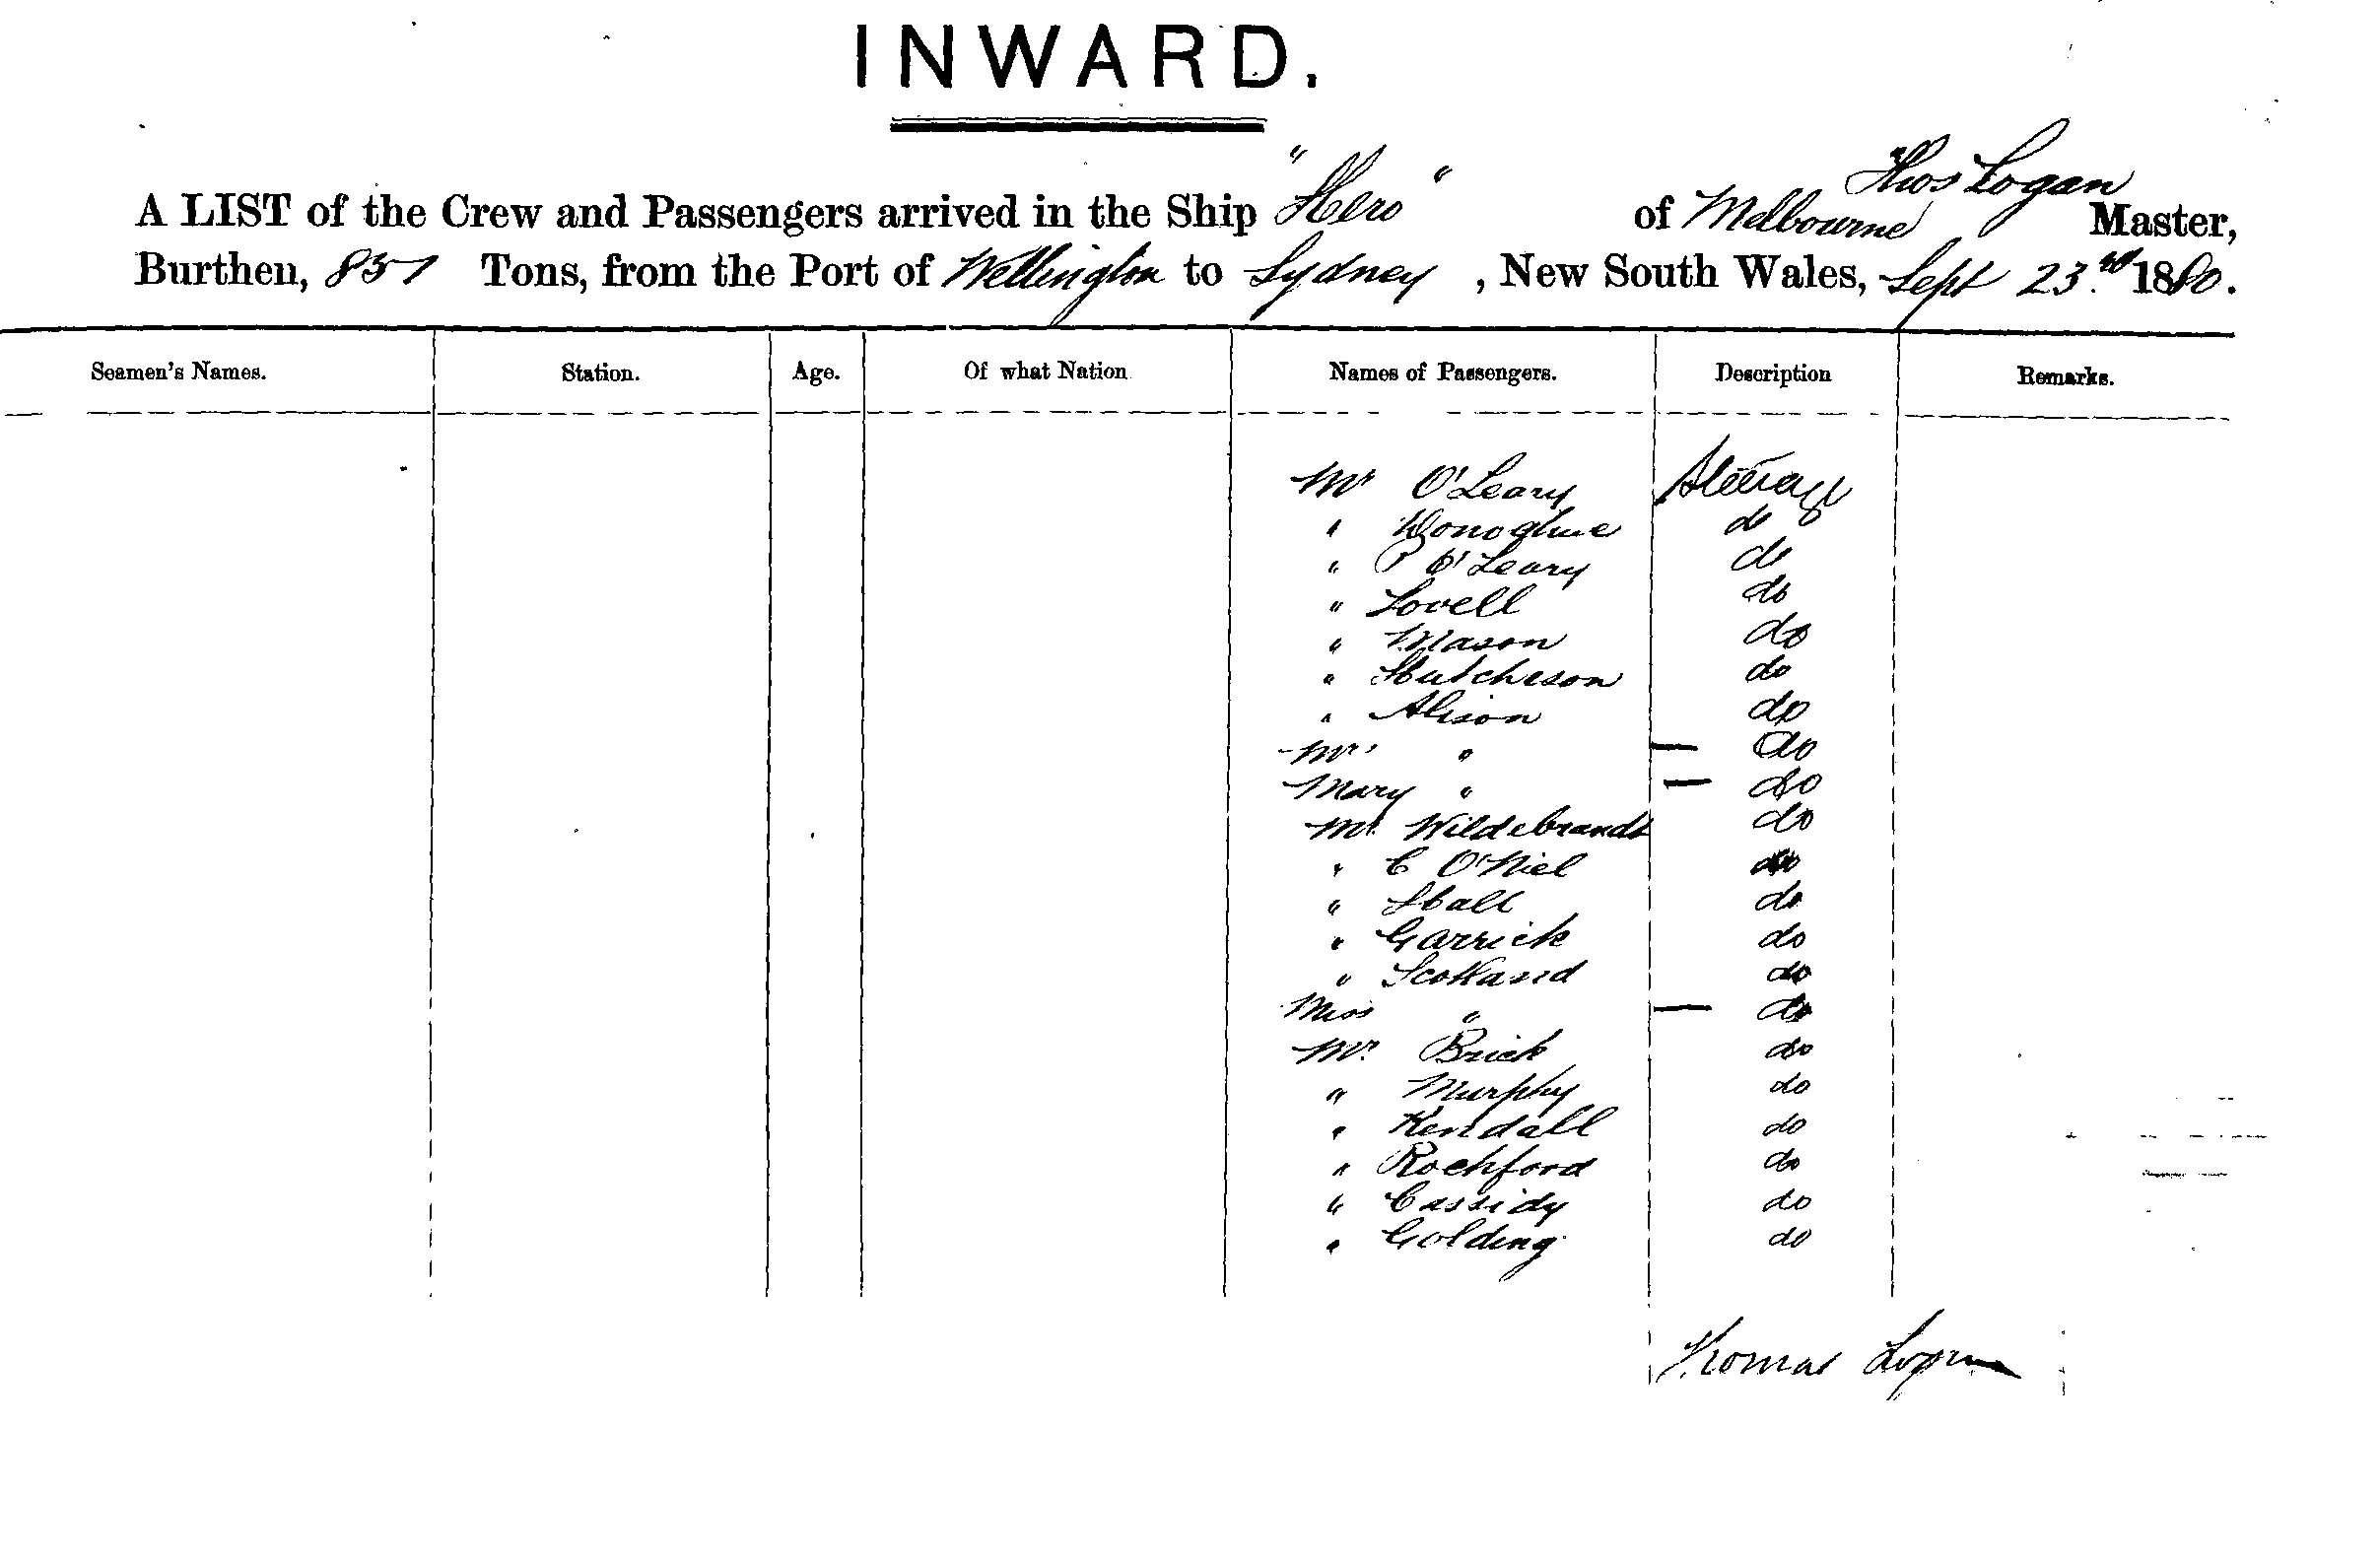 INWARD.
A LIST of the Crew and Passengers arrived in the Ship "Hero" of Melbourne Thos Logan Master,
Burthen, 857 Tons, from the Port of Wellington to Sydney, New South Wales, Sept 23rd 1880.
Seamen's Names. Station. Age. Of what Nation Names of Passengers. Description Remarks.
Mr O'Leary Steerage
" Donoghue do
" P O'Leary do
" Lovell do
" Mason do
" Hutcheson do
" Alison do
Mrs " — do
Mary " — do
Mr. Wildebrandt do
" C O'Niel do
" Hall do
" Garrick do
" Scotland do
Miss " — do
Mr. Brick do
" Murphy do
" Kendall do
" Rochford do
" Cassidy do
" Golding do
Thomas Logan